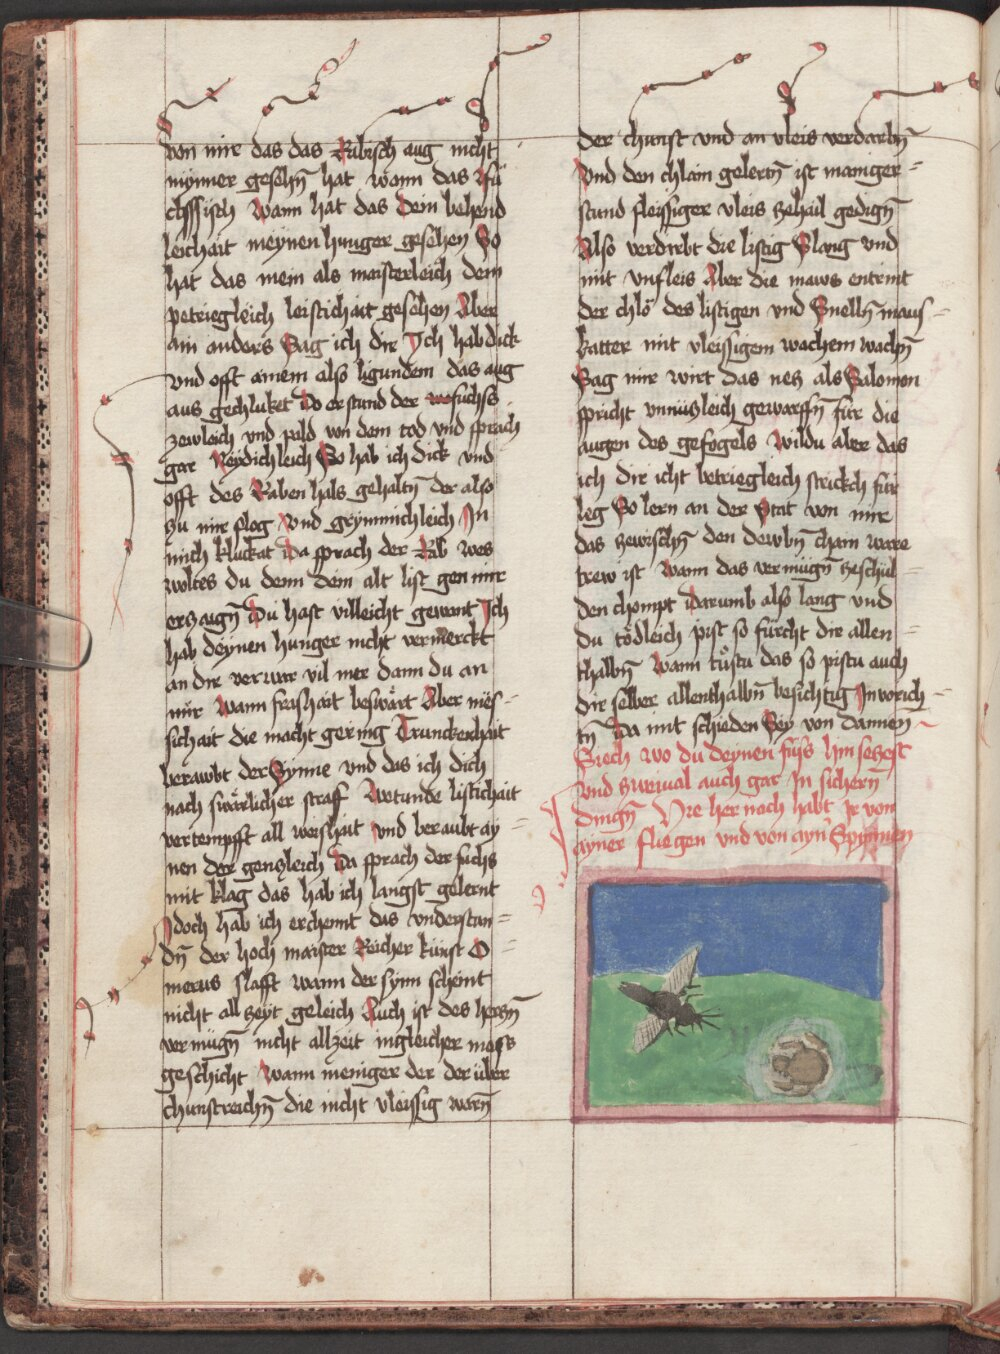 von mir das das Rabisch aug nicht
mynner gesehn̄ hat wann das Fu
chssisch Wann hat das Dein behend
leichait meynen hunger gesehen So
hat das mein als maisterleich dein
petriegleich leistichait gesehen Aber
ain anders Sag ich dir Ich hab dick
vnd offt ainem also ligundem das aug
aus gechluket Do er stund der fuchss
zewleich vnd pald von dem tod vnd sprach
gar Neydichleich So hab ich dick vnd
offt des Raben hals gehaltn̄ der also
zu mir flog Vnd grymmichleich In
mich kluckat Da sprach der Rab wes
woltes du denn dein alt list gen mir
erzaign̄ Du hast villeicht gewent Ich
hab deynen hunger nicht vermerckt
an dir verwar vil mer dann du an
mir Wann frashait beswärt Aber mës-
sichait die macht gering Trunckenhait
berawbt der Synne vnd das ich dich
nach swärlicher straff Wetunde listichait
vertempfft all weishait vnd beraubt ay-
nen der genzleich Da sprach der fuchs
mit klag das hab ich langst gelernt
Idoch hab ich erchennt das vnderstan-
dn̄ der hoch maister Reicher kunst O-
merus slafft wann der synn scheint
nicht all zeyt geleich Auch ist des herczn̄
vermügn̄ nicht allzeit ingleicher mass
geschicht Wann meniger der der über
chunstreichn̄ die nicht vleissig warn̄
der chunst vnd an vleis verdarbn̄
Vnd den chlain gelertn̄ ist maniger-
stund fleissiger vleis zehail gedign̄
Also verdirbt die listig Slang vnd
mit vnfleis Aber die maws entrint
der chlö des listigen vnd Snelln̄ maus-
katter mit vleissigem wachem wachn̄
Sag mir wirt das nez als Salomon
spricht vnnüzleich geworffn̄ für die
augen des gefogels Wildu aber das
ich dir icht betriegleich strickch für
leg So lern an der Stat von mir
das zewischn̄ den dewbn̄ chain ware
trew ist Wann das vermügn̄ ze schul-
den chompt Darumb also lang vnd
du tödleich pist so fürcht dir allen-
thalbn̄ Wann tustu das so pistu auch
dir selber allenthalbn̄ besichtig In vorich-
tn̄ Da mit schieden Sey von dannen̄
Siech wo du deynen fuss hin sezest
Vnd zwiual auch gar In sichern̄
dingn̄ Hie her nach habt Ir von
ayner fliegen vnd von ayn̄ Spynnen